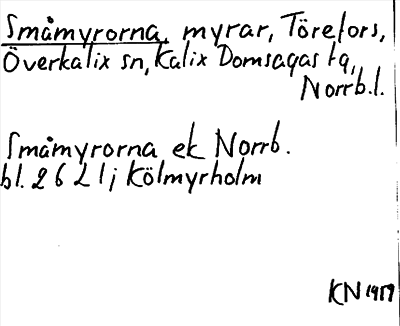 Småmyrorna, myrar, Törefors,
Överkalix sn, Kalix Domsagas tg,
Norrb.l.
Småmyrorna ek Norrb.
bl. 26 L 1 j Kölmyrholm
KN